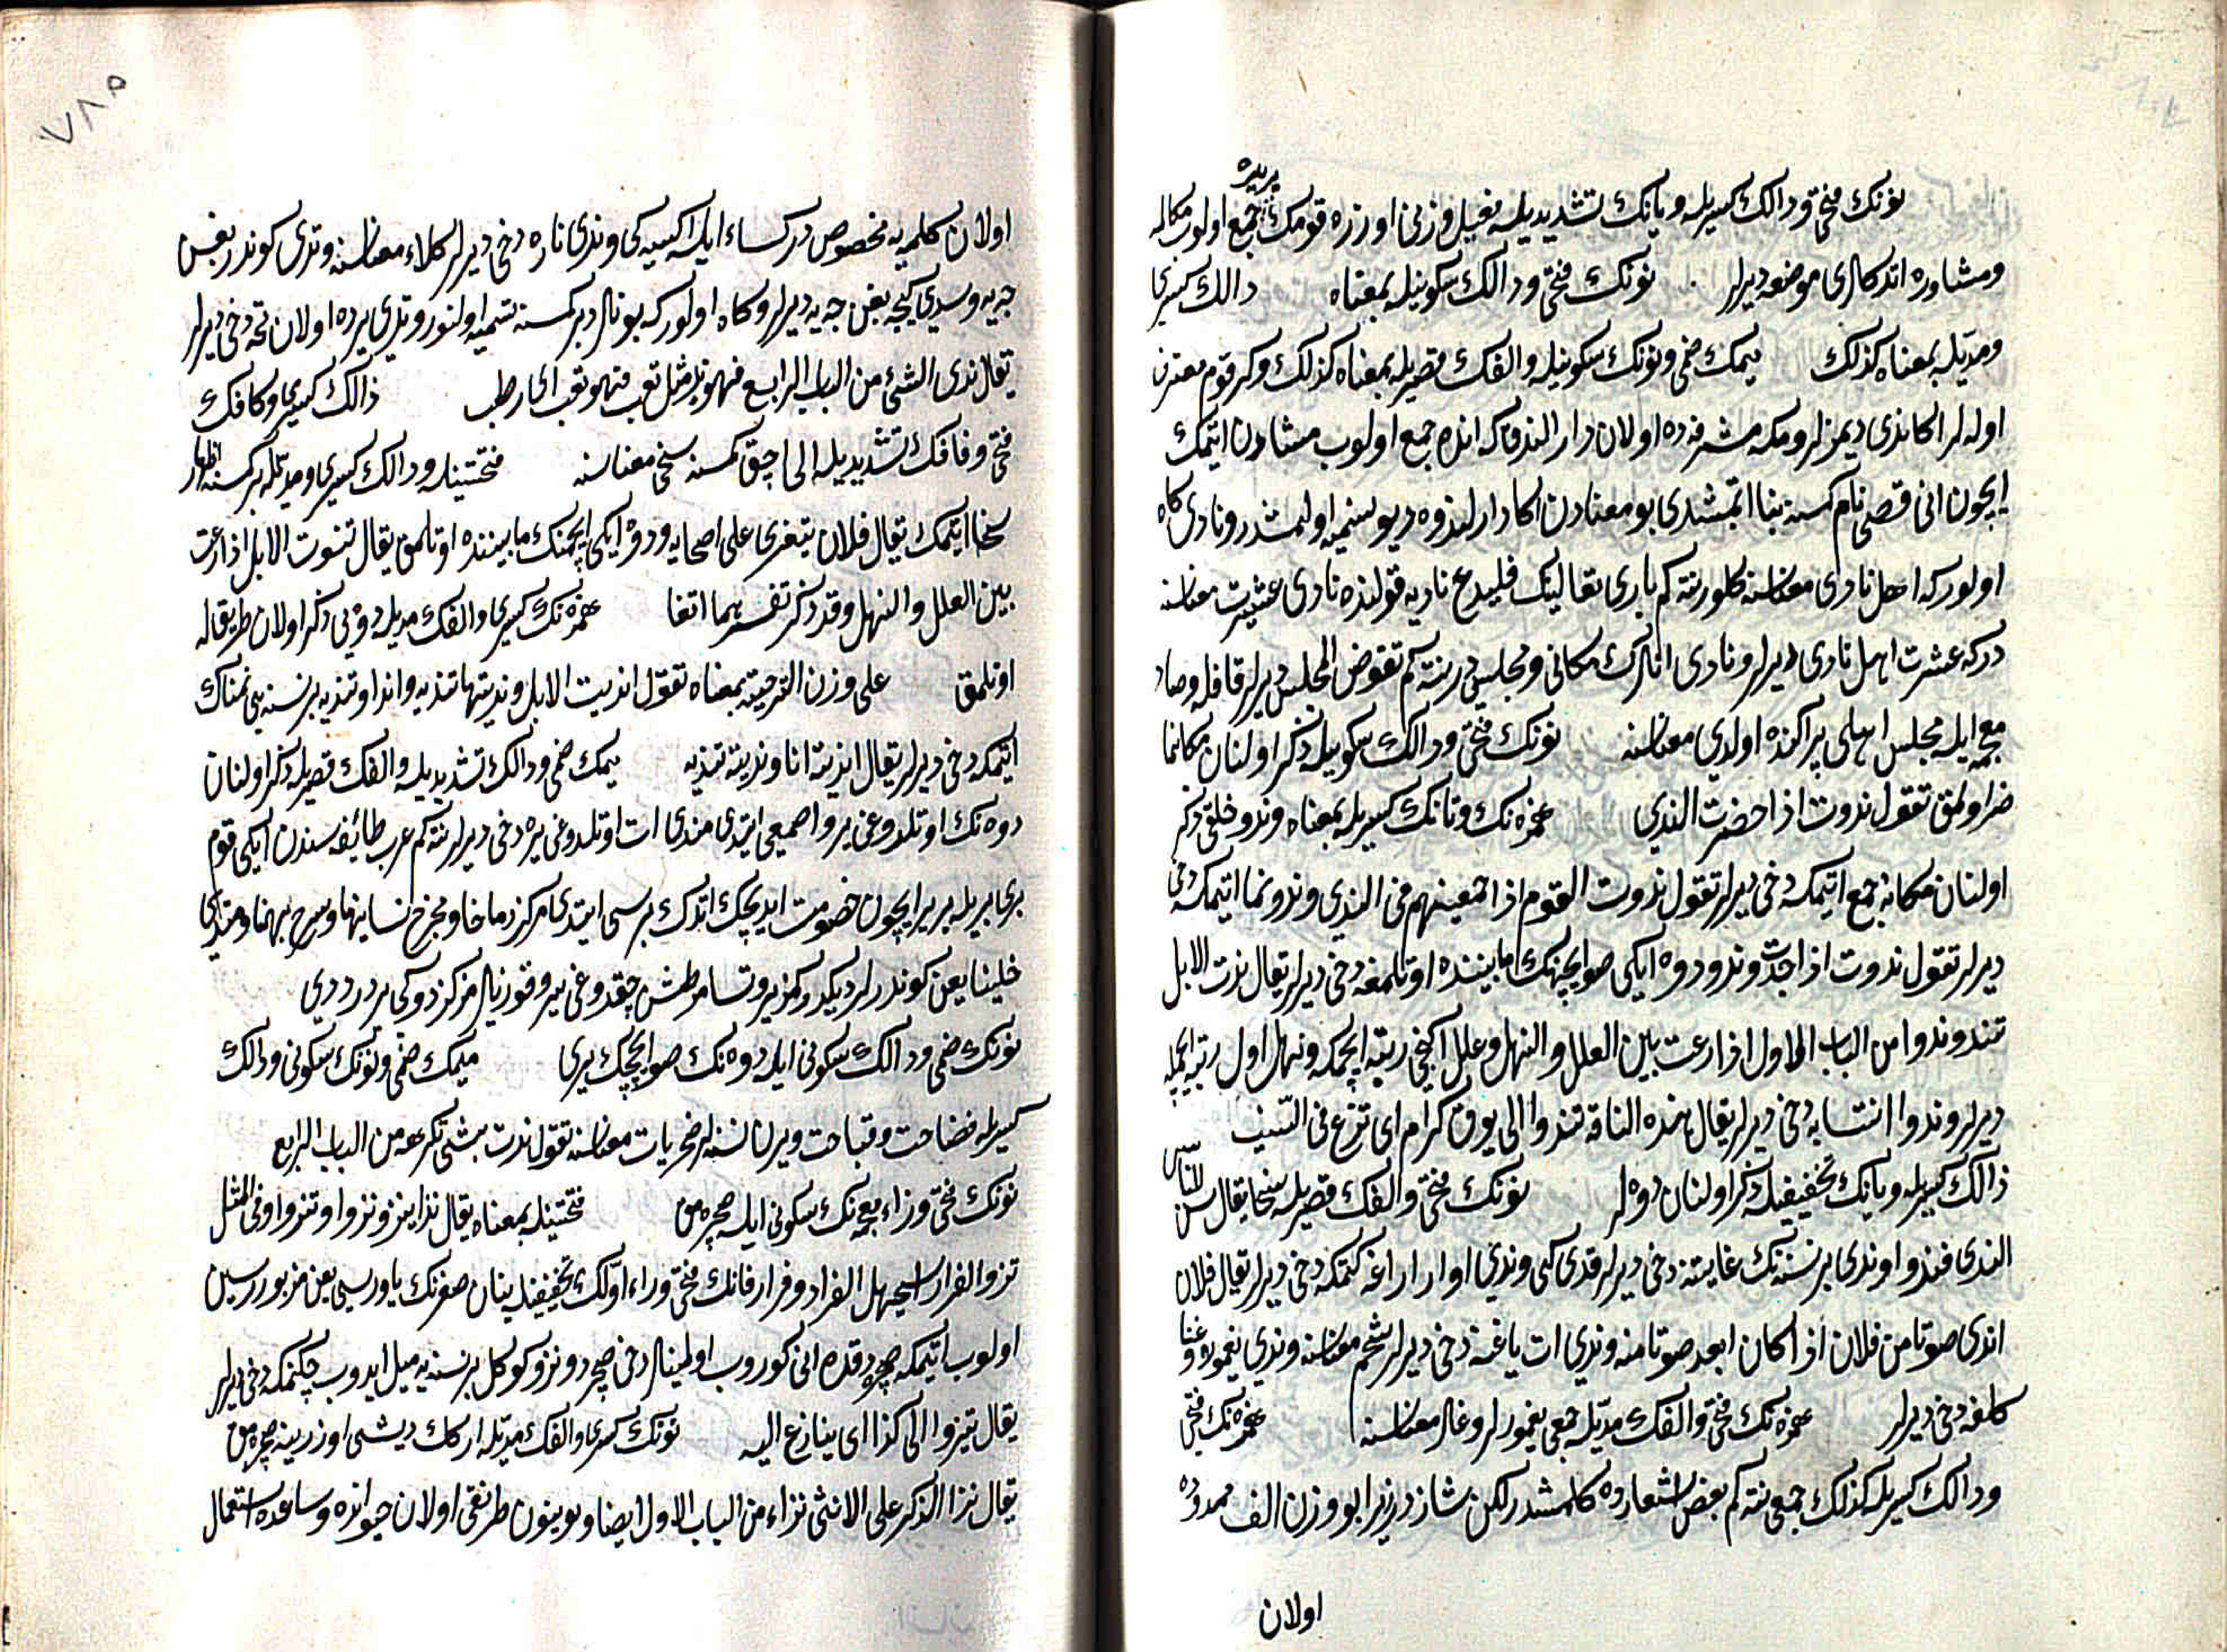 یریره
نونك فتحی و دالك كسریله و یانك تشدیدیله فعیل وزنی اوزره قومك جمع اولوب مكالمه
و مشاوره اتدكلری موضعه دیرلر نونك فتحی و دالك سكونیله بمعناه دالك كسری
و مدیله بمعناه كذلك میمك ضمی و نونك سكونیله و الفك قصریله بمعناه كذلك و كر قوم
اولهلر اكا ندی دیمزلر و مكه مشرفهده اولان دار الندوة كه انده جمع اولوب مشاورت ایتمك
ایچون انی قصی نام كمسنه بنا ایتمشدی بو معنادن اكا دار الندوه دیو تسمیه اولنمشدر و نادی كاه
اولور كه اهل نادی معناسنه كلور نته كم باری تعالینك فلیدع نادیه قولنده نادی عشیرت معناسنه
در كه عشرت اهل نادی دیرلر و نادی انلرك مكانی و مجلسیدر نته كم تقوض المجلس دیرلر قاف و صاد
معجمه ایله مجلس اهلی پراكنده اولدی معناسنه نونك فتحی و دالك سكونیله ذكر اولنان مكانه
حاضر اولمق تقول ندوت اذا حضرت الندی همزهنك و تانك كسریله بمعناه و ندو خلقی ذكر
اولنان مكانه جمع ایتمكه دخی دیرلر تقول ندوت القوم اذا جمعتهم فی الندی و ندو نما ایتمكه دخی
دیرلر تقول ندوت اذا جدت و ندو دوه ایكی صو ایچمنك مابیننده اوتلامغه دخی دیرلر یقال ندت الابل
تندو ندوا من الباب الاول اذا رعت بین العلل و النهل و علل ایكنجی رتبه ایچمكه و نهل اول رتبه ایچمكه
دیرلر و ندوا انتسابه دخی دیرلر یقال هذه الناقة تندوا الی نوق كرام ای تنزع فی النسب
دالك كسریله و یانك تخفیفیله ذكر اولنان دوهلر نونك فتحی و الفك قصریله سخا یقال سن للناس
الندی فندوا و ندی برنسنهنك غایتنه دخی دیرلر مدی كبی و ندی اواز اراغه كتمكه دخی دیرلر یقال فلان
اندی صوتا من فلان اذا كان ابعد صوتا منه و ندی ات یاغنه دخی دیرلر شحم معناسنه و ندی یغموره و غنا
كلمغه دخی دیرلر همزهنك فتحی و الفك مدیله جمعی یغمورلر و غالر معناسنه همزهنك فتحی
و دالك كسریله كذلك جمعی نته كم بعض اشعارده كلمشدر لكن شاذدر زیرا بو وزن الف ممدوده
اولان
٧٨٥
اولان كلمهیه مخصوصدر كساء ایله اكسیه كبی و ندی نازه دخی دیرلر كلاء معناسنه و ندی كوندز یغن
چیه و سدی كیجه یغن چیه دیرلر و كاه اولور كه بونلر دیر كمسنه تسمیه اولنور و ندی یرده اولان نمه دخی دیرلر
یقال ندی الشئ من الباب الرابع فهو ند مثل تعب فهو تعب ای رطب دالك كسری و كافك
فتحی و فافك تشدیدیله الی اچق كمسنه سخی معناسنه فتحتینله و دالك كسری و مدیله بر كمسنه اظهار
سخا ایتمك یقال فلان یتندی علی اصحابه و دوه ایكی ایچمنك مابیننده اوتلامق یقال تندت الابل اذا رعت
بین العلل و النهل و قد ذكر تفسیرهما انفا همزهنك كسری و الفك مدیله دوهیی ذكر اولان طریقله
اوتلامق علی وزن الترجیة بمعناه تقول اندیت الابل و ندیتها تندیة و اندا و تندیه برنسنهیی نمناك
ایتمكه دخی دیرلر یقال اندیته انا و ندیته تندیه میمك ضمی و دالك تشدیدیله و الفك قصریله ذكر اولنان
دوهنك اوتلدوغی یر و اصمعی ایتدی مندی ات اوتلدوغی یره دخی دیرلر نته كم عرب طائفهسندن ایكی قوم
بری بریله بر یر ایچون خصومت ایدیجك انلرك برسی ایتدی مركز رماحنا و مخرج نسائنا و مسرح بهمنا و مندی
خیلنا یعنی كوندرلر دیكدوكمز یر و نسامز طشره چقدوغی یر و قوزیلرمز كزدوكی یردر دیدی
نونك ضمی و دالك سكونی ایله دوهنك صو ایچچك یری میمك ضمی و نونك سكونی و دالك
كسریله فضاحت و قباحت ویرن نسنهلر مخزیات معناسنه تقول ندیت بشئ تكرهه من الباب الرابع
نونك فتحی و زاء معجمهنك سكونی ایله صچرهمق فتحتینله بمعناه یقال نزا ینزو نزوا و نزوانا و فی المثل
نزو الفرار استجهل الفرار و فرار فانك فتحی و راء اولك تخفیفیله یبان صغرنك یاوریسی یعنی مزبور سین
اولوب ایتمكه صچردقده انی كوروب اولبنلر دخی صچردر و نزو كوكل برنسنهیه میل ایدوب چكنمكه دخی دیرلر
یقال تنزوا الی كذا ای ینازع الیه نونك كسری و الفك مدیله اركك دیشی اوزرینه صچرهمق
یقال نزا الذكر علی الانثی نزاء من الباب الاول ایضا و بوینوزن طرنقلی اولان حیوانده و ساعده استعمال